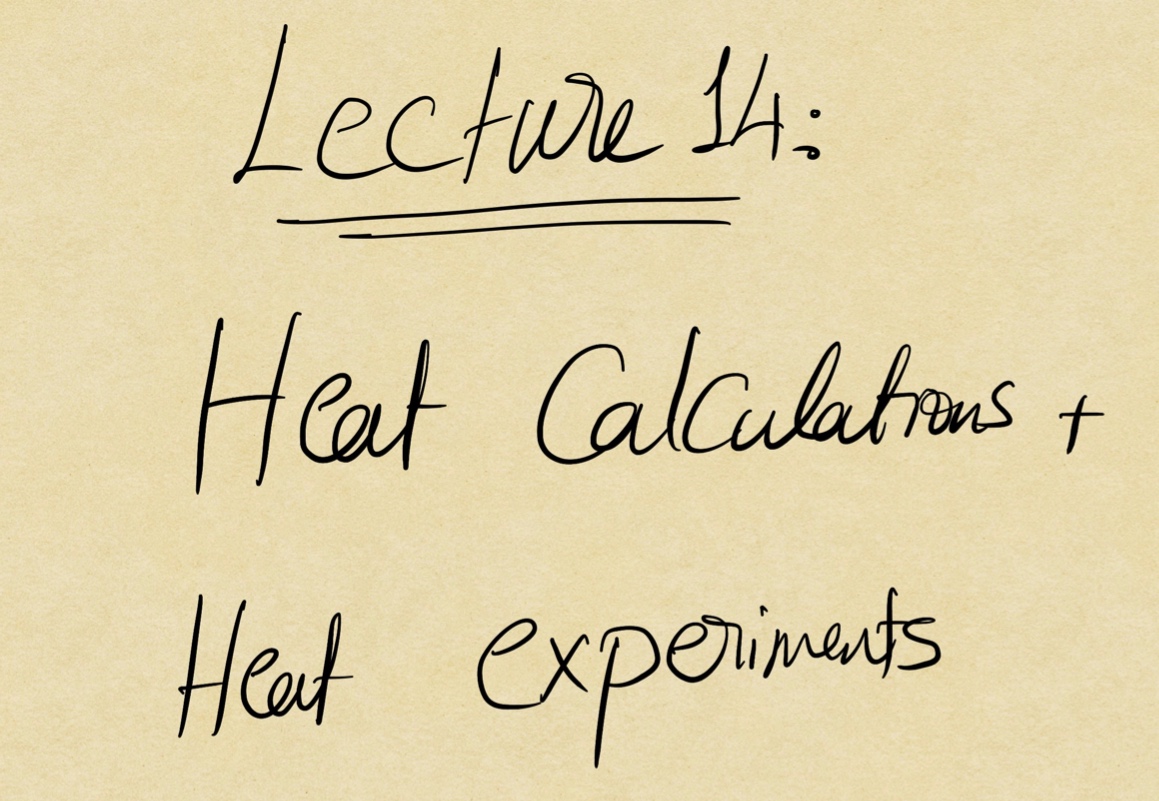 Lecture 14:
Heat Calculations +
Heat experiments